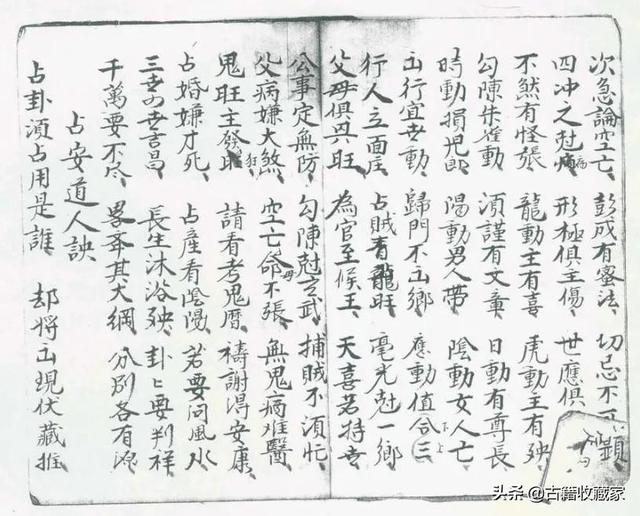 次急論空亡、彭戒有蜜法、切忌不顕、
四冲之尅病、形極俱主傷、世應俱
不然有怪張、龍動主有喜、虎動主有殃、
勾陳朱雀動、須謹有文章、日動有尊長
時動損児郎、陽動男人帶、陰動女人亡、
出行宜世動、歸門不出鄉、應動值合三、
行人立面庄、占賊看龍旺、毫光尅一鄉、
父母俱興旺、為官至候王、天喜若持世
公事定無防、勾陳尅玄武、捕賊不須忙、
父病嫌大煞、空亡命不張、無鬼病难醫、
鬼旺主發狂、請看考鬼曆、禱謝得安康、
占婚嫌才死、占産看陰陽、若要问風水、
三世四世吉昌、長生沐浴殃、卦卜要判祥、
千萬要不尽、畧奔其大綱、分别各有源
占安道人訣
占卦須占用是誰、却將出現伏藏推
头条@古籍收藏家